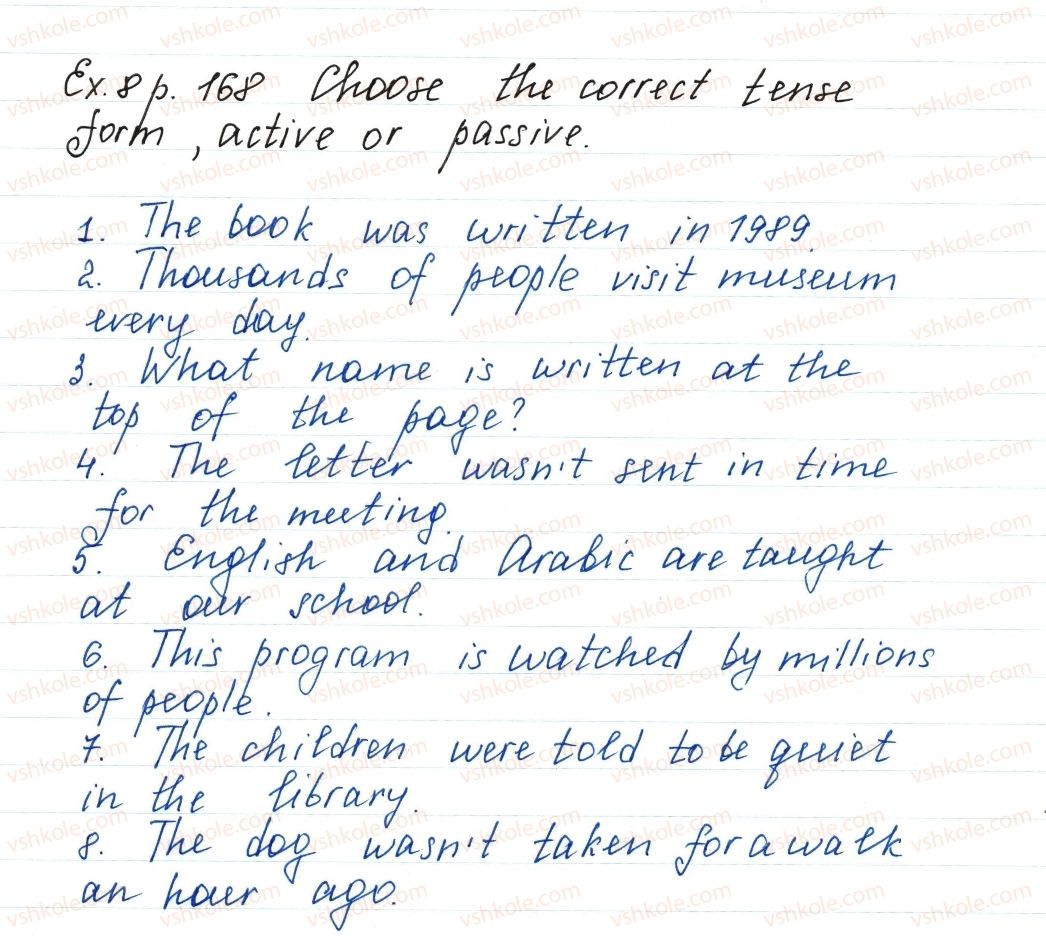 Ex. 8 p. 168 Choose the correct tense
form, active or passive.
1. The book was written in 1989.
2. Thousands of people visit museum
every day.
3. What name is written at the
top of the page?
4. The letter wasn't sent in time
for the meeting.
5. English and Arabic are taught
at our school.
6. This program is watched by millions
of people.
7. The children were told to be quiet
in the library.
8. The dog wasn't taken for a walk
an hour ago.
vshkole.com